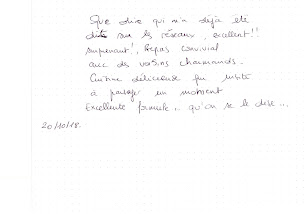 Que dire qui n'a déjà été
dit sur les réseaux, excellent!!
surprenant!, Repas convivial
avec des voisins charmants.
Cuisine délicieuse qui invite
à partager un moment
Excellente formule... qu'on se le dise...
20/10/18.